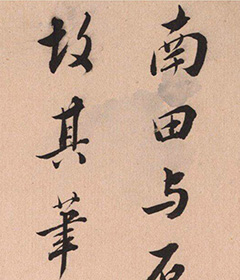 南田与石
故其筆